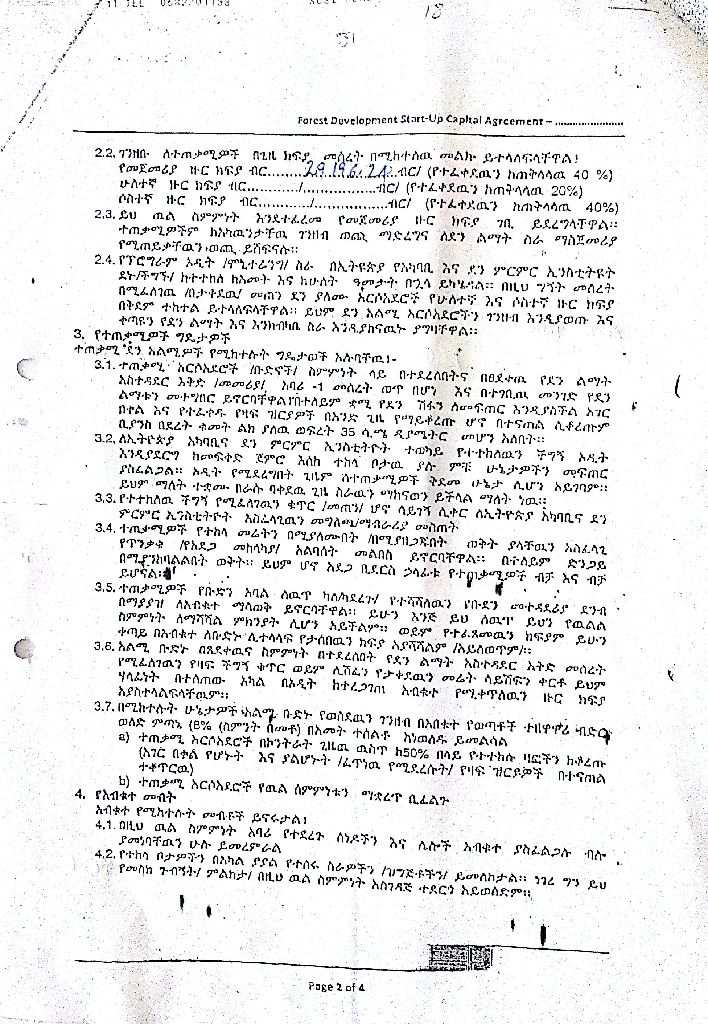 18
Forest Development Start-Up Capital Agreement – ......................
2.2. ገንዘቡ ለተጠቃሚዎች በጊዜ ክፍያ መሰረት በሚከተለዉ መልኩ ይተላለፍላቸዋል፤
የመጀመሪያ ዙር ክፍያ ብር........29,196.24.ብር/ (የተፈቀደዉን ከጠቅላላዉ 40 %)
ሁለተኛ ዙር ክፍያ ብር............/..................ብር/ (የተፈቀደዉን ከጠቅላላዉ 20%)
ሶስተኛ ዙር ክፍያ ብር............/..................ብር/ (የተፈቀደዉን ከጠቅላላዉ 40%)
2.3. ይህ ዉል ስምምነት እንደተፈረመ የመጀመሪያ ዙር ክፍያ ገቢ ይደረግላቸዋል።
ተጠቃሚዎችም ከአካዉንታቸዉ ገንዘብ ወጪ ማድረግና ለደን ልማት ስራ ማስጀመሪያ
የሚጠይቃቸዉን ወጪ ይሸፍናሉ።
2.4. የፕሮግራም ኦዲት /ሞኒተሪንግ/ ስራ በኢትዮጵያ የአካባቢ እና ደን ምርምር ኢንስቲትዩት
ደኑ/ችግኙ/ ከተተከለ ከአመት እና ከሁለት ዓመታት በኋላ ይካሄዳል። በዚህ ግኝት መሰረት
በሚፈለገዉ /በታቀደዉ/ መጠን ደን ያለሙ አርሶአደሮች የሁለተኛ እና ሶስተኛ ዙር ክፍያ
በቅደም ተከተል ይተላለፍላቸዋል። ይህም ደን አልሚ አርሶአደሮችን ገንዘብ እንዲያወጡ እና
ቀጣዩን የደን ልማት እና እንክብካቤ ስራ እንዲያከናዉኑ ያግዛቸዋል።
3. የተጠቃሚዎች ግዴታዎች
ተጠቃሚ ደን አልሚዎች የሚከተሉት ግዴታወች አሉባቸዉ፤-
3.1. ተጠቃሚ አርሶአደሮች /ቡድኖች/ ስምምነት ላይ በተደረሰበትና በፀደቀዉ የደን ልማት
አስተዳደር እቅድ /መመሪያ/ አባሪ -1 መሰረት ወጥ በሆነ እና በተገቢዉ መንገድ የደን
ልማቱን መተግበር ይኖርባቸዋል።በተለይም ቋሚ የደን ሽፋን ለመፍጠር እንዲያስችል አገር
በቀል እና የተፈቀዱ የዛፍ ዝርያዎች በአንድ ጊዜ የማይቆረጡ ሆኖ በተናጠል ሲቆረጡም
ቢያንስ በደረት ቁመት ልክ ያለዉ ወፍረት 35 ሳ.ሜ ዲያሜትር መሆን አለበት።
3.2. ለኢትዮጵያ አካባቢና ደን ምርምር ኢንስቲትዮት ተወካይ የተተከለዉን ችግኝ ኦዲት
እንዲያደርግ ከመፍቀድ ጀምሮ እስከ ተከላ ቦታዉ ያሉ ምቹ ሁኔታዎችን መፍጠር
ያስፈልጋል። ኦዲት የሚደረግበት ጊዜም ለተጠቃሚዎች ቅድመ ሁኔታ ሊሆን አይገባም።
ይህም ማለት ተቋሙ በራሱ ባቀደዉ ጊዜ ስራዉን ማከናወን ይችላል ማለት ነዉ።
3.3. የተተከለዉ ችግኝ የሚፈለገዉን ቁጥር /መጠን/ ሆኖ ሳይገኝ ሲቀር ለኢትዮጵያ አካባቢና ደን
ምርምር ኢንስቲትዮት አስፈላጊዉን መግለጫ/ማብራሪያ መስጠት
3.4. ተጠቃሚዎች የተከላ መሬትን በሚያለሙበት /በሚያዘጋጁበት ወቅት ያላቸዉን አስፈላጊ
የጥንቃቄ /የአደጋ መከላከያ/ አልባሳት መልበስ ይኖርባቸዋል። በተለይም ድንጋይ
በሚያንከባልልበት ወቅት። ይህም ሆኖ አደጋ ቢደርስ ኃላፊቱ የተጠቃሚዎች ብቻ እና ብቻ
ይሆናል።
3.5. ተጠቃሚዎች የቡድን አባል ለዉጥ ካለ/ካደረጉ/ የተሻሻለዉን የቡድን መተዳደሪያ ደንብ
በማያያዝ ለአብቁተ ማሳወቅ ይኖርባቸዋል። ይሁን እንጅ ይህ ለዉጥ ይህን የዉልል
ስምምነት ለማሻሻል ምክንያት ሊሆን አይችልም። ወይም የተፈጸመዉን ክፍያም ይሁን
ቀጣይ በአብቁተ ለቡድኑ ሊተላለፍ የታሰበዉን ክፍያ አያሻሽልም /አይለወጥም/።
3.6. አልሚ ቡድኑ በጸደቀዉና ስምምነት በተደረሰበት የደን ልማት አስተዳደር እቅድ መሰረት
የሚፈለገዉን የዛፍ ችግኝ ቁጥር ወይም ሊሸፈን የታቀደዉን መሬት ሳይሸፍን ቀርቶ ይህም
ሃላፊነት በተሰጠው አካል በኦዲት ከተረጋገጠ፤ አብቁተ የሚቀጥለዉን ዙር ክፍያ
አያስተላልፍላቸዉም።
3.7. በሚከተሉት ሁኔታዎች አልሚ ቡድኑ የወሰደዉን ገንዘብ በአብቁተ የወጣቶች ተዘዋዋሪ ብድር
ወለድ ምጣኔ (8% (ስምንት በመቶ) በአመት ተሰልቶ እነወለዱ ይመልሳል
a) ተጠቃሚ አርሶአደሮች በኮንትራት ጊዜዉ ዉስጥ ከ50% በላይ የተተከሉ ዛፎችን ከቆረጡ
(አገር በቀል የሆኑት እና ያልሆኑት /ፈጥነዉ የሚደረሱት/ የዛፍ ዝርያዎች በተናጠል
ተቆጥረዉ)
b) ተጠቃሚ አርሶአደሮች የዉል ስምምነቱን ማቋረጥ ቢፈልጉ
4. የአብቁተ መብት
አብቁተ የሚከተሉት መብቶች ይኖሩታል፤
4.1. በዚህ ዉል ስምምነት አባሪ የተደረጉ ሰነዶችን እና ሌሎች አብቁተ ያስፈልጋሉ ብሎ
ያመነባቸዉን ሁሉ ይመረምራል
4.2. የተከላ ቦታዎችን በአካል ያያል የተሰሩ ስራዎችን /ዝግጅቶችን/ ይመለከታል። ነገረ ግን ይህ
የመስክ ጉብኝት/ ምልከታ/ በዚህ ዉል ስምምነት አስገዳጅ ተደርጎ አይወሰድም።
Page 2 of 4